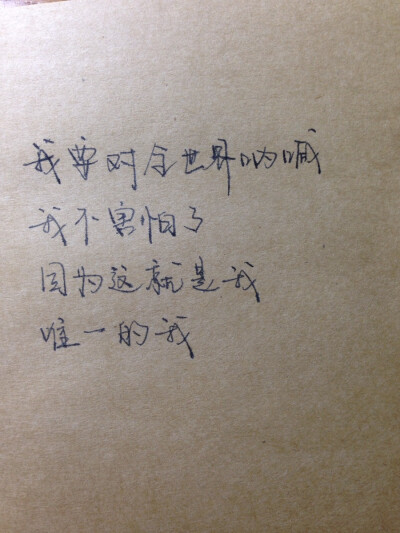 我要对全世界呐喊
我不害怕了
因为这就是我
唯一的我